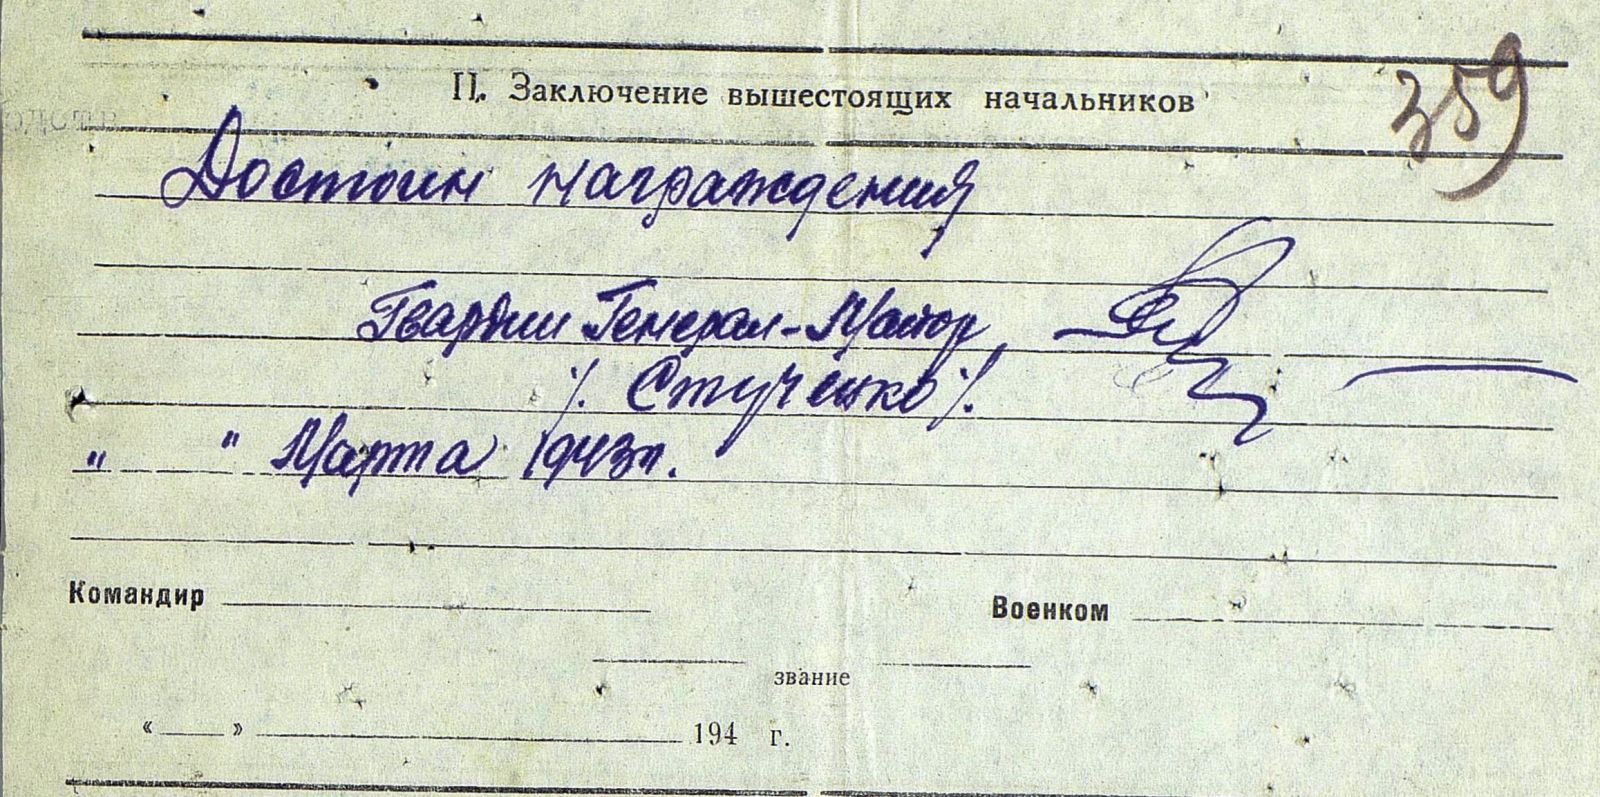 359
II. Заключение вышестоящих начальников
Достоин награждения
Гвардии Генерал-Майор
/. Стученко /.
" " Марта 1943 г.
Командир Военком
звание
« » 194 г.